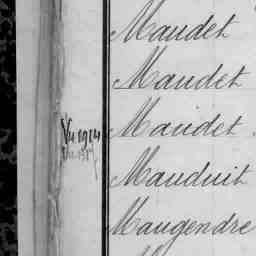 Maudet
Maudet
Maudet
Mauduit
Maugendre